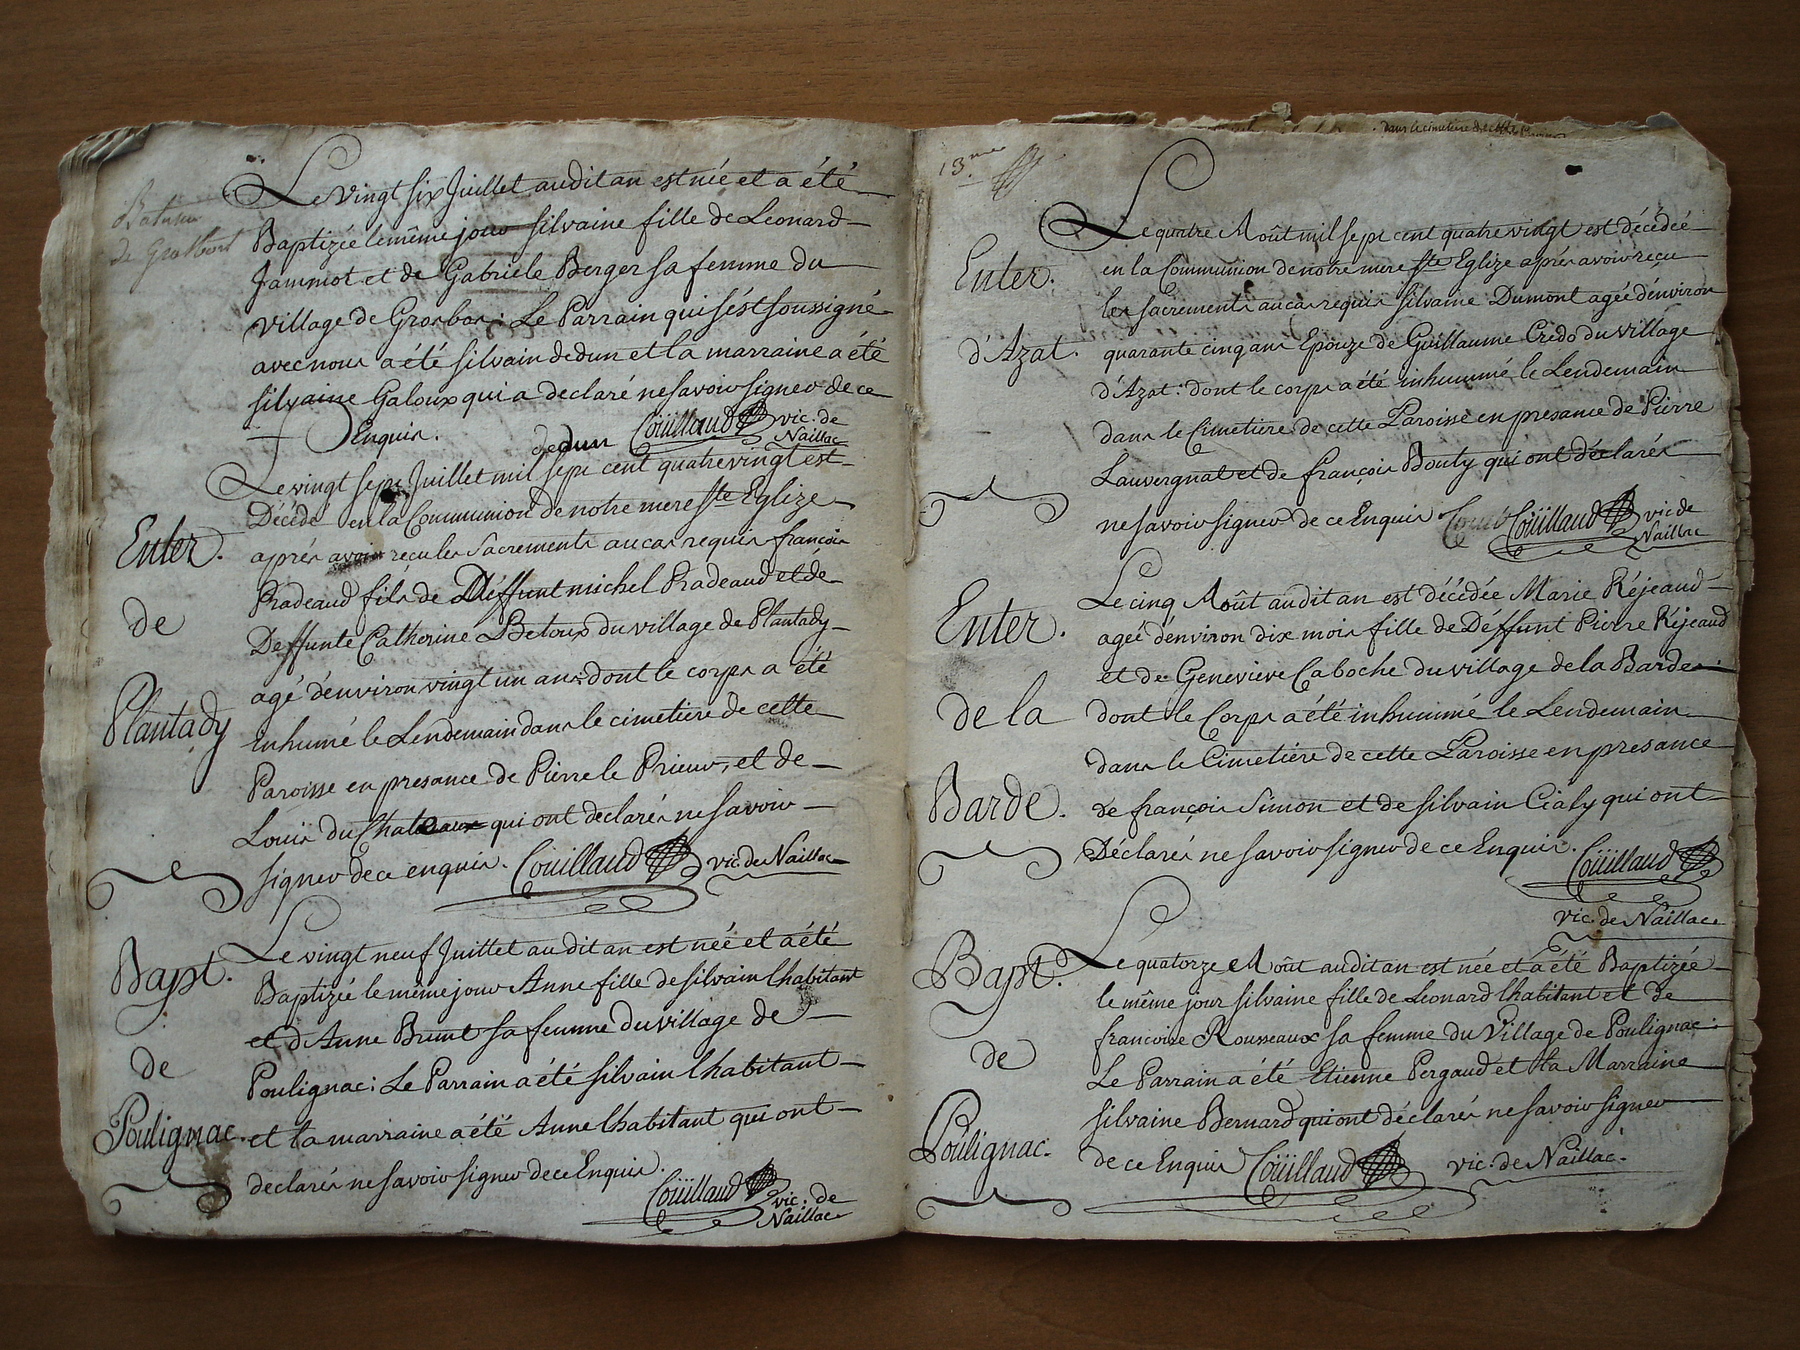 Le vingt six Juillet audit an est née et a été
Baptizée le même jour silvaine fille de Leonard
Jammot et de Gabriele Berger sa femme du
village de Grosbos : Le Parrain qui s'est soussigné
avec nous a été silvain dedun et la marraine a été
silvaine Galoux qui a declaré ne savoir signer de ce
Enquis. dedun Coüillaud vic. de
Naillac
Le vingt sept Juillet mil sept cent quatre vingt est
Décédé en la Communion de notre mere Ste Eglize
Enter.
après avoir recu les Sacrements au cas requis françois
Pradeaud fils de Déffunt michel Pradeaud et de
de
Deffunte Catherine Betoux du village de Plantady
agé d'environ vingt un ans dont le corps a été
Plantady
inhumé le Lendemain dans le cimetiere de cette
Paroisse en presance de Pierre le Prieur, et de
Louis du qui ont declarés ne savoir
signer de ce enquis. Coüillaud vic. de Naillac
Le vingt neuf Juillet audit an est née et a été
Bapt.
Baptizée le même jour Anne fille de silvain lhabitant
et d'Anne Brunt sa femme du village de
de
Poulignac : Le Parrain a été silvain lhabitant
Poulignac.
et la marraine a été Anne lhabitant qui ont
declarés ne savoir signer de ce Enquis.
Coüillaud vic. de
Naillac
13.me
Le quatre Août mil sept cent quatre vingt est décédée
Enter.
en la Communion de notre mere Ste Eglize après avoir reçu
les sacrements au cas requis silvaine Dumont agée d'environ
d'Azat.
quarante cinq ans Epouze de Guillaume Credo du village
d'Azat : dont le corps a été inhummé le Lendemain
dans le Cimetiere de cette Paroisse en presance de Pierre
Lauvergnat et de françois Bouty qui ont déclarés
ne savoir signer de ce Enquis Coüillaud vic de
Naillac
Le cinq Août audit an est décédée Marie Réjeaud
Enter.
ageé d'environ dix mois fille de Déffunt Pierre Réjeaud
et de Genevieve Caboche du village de la Barde :
de la
dont le Corps a été inhummé le Lendemain
dans le Cimetiére de cette Paroisse en presance
Barde.
de françois Simon et de silvain Cialy qui ont
Déclarés ne savoir signer de ce Enquis.
Coüillaud
vic. de Naillac
Le quatorze Août audit an est née et a été Baptizée
Bapt.
le même jour silvaine fille de Leonard lhabitant et de
francoise Rousseaux sa femme du Village de Poulignac :
de
Le Parrain a été Etienne Pergaud et la Marraine
silvaine Bernard qui ont déclarés ne savoir signer
Poulignac.
de ce Enquis Coüillaud vic. de Naillac.